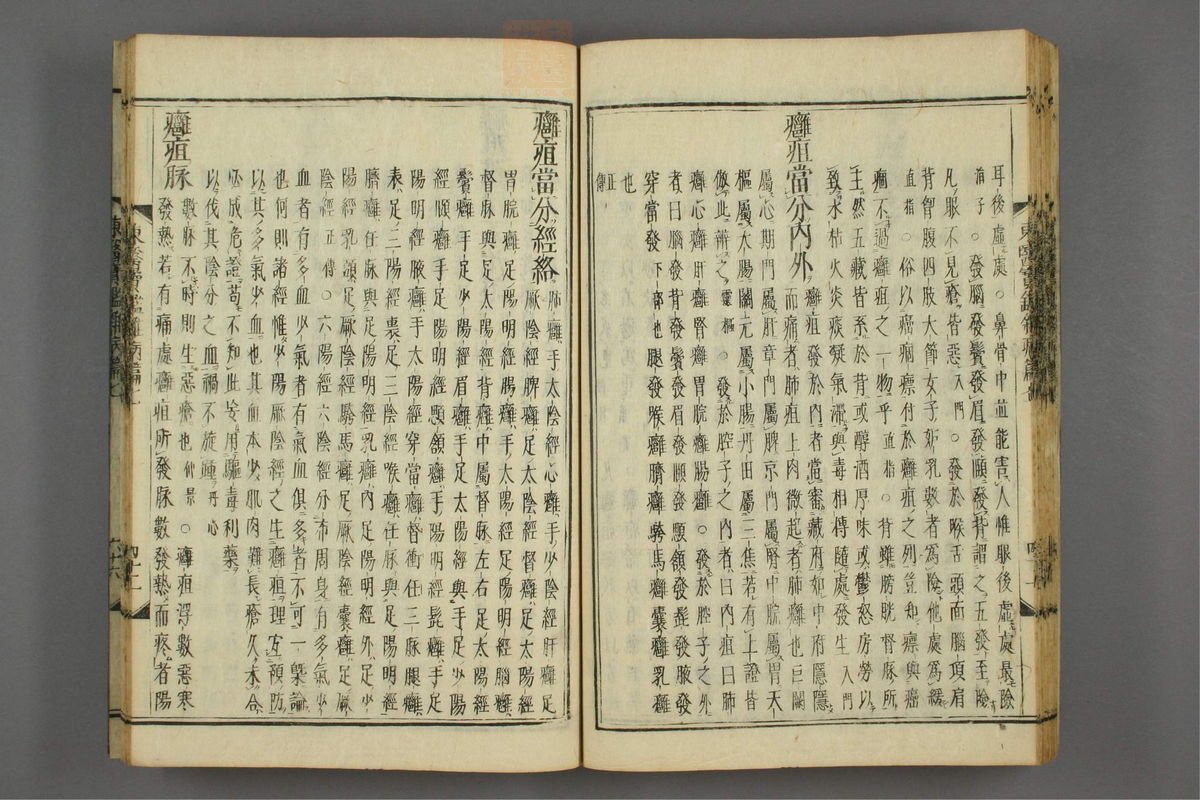 耳後虛處○鼻骨中並能害人惟眼後虛處最險
凡眼不見瘡皆惡入門○發於喉舌頭面腦項肩
背胷腹四肢大節女子妬乳數者爲險他處爲緩
直指○俗以癌痼瘭付於癰疽之列豈知瘭與癌
痼不過癰疽之一物乎直指○背雖膀胱督脉所
主然五藏皆系於背或醇酒厚味或鬱怒房勞以
致水枯火炎痰凝氣滯與毒相傳隨處發生入門
癰疽當分內外癰疽發於內者當審藏府如中府隱隱
而痛者肺疽上肉微起者肺癰也巨闕
屬心期門屬肝章門屬脾京門屬腎中脘屬胃天
樞屬大腸關元屬小腸丹田屬三焦若有上證皆
倣此辨之靈樞○發於腔子之內者曰內疽曰肺
癰心癰肝癰腎癰胃脘癰腸癰○發於腔子之外
者曰腦發背發鬢發眉發頤發顋頷發髭發腋發
穿當發下部也腿發喉癰臍癰騎馬癰囊癰乳癰
也正傳
癰疽當分經絡肺癰手太陰經心癰手少陰經肝癰足
厥陰經脾癰足太陰經腎癰足少陰經
胃脘癰足陽明經腸癰手太陽經足陽明經腦癰
督脉與足太陽經背癰中屬督脉左右足太陽經
鬢癰手足少陽經眉癰手足太陽經與手足少陽
經頤癰足陽明經顋頷癰手陽明經髭癰手足
陽明經腋癰手太陽經穿當癰督衝任三脉腿癰
表足三陽經裏足三陰經喉癰任脉與足陽明經
臍癰任脉與足陽明經乳癰內足陽明經外足少
陽經乳頭足厥陰經騎馬癰足厥陰經囊癰足厥
陰經正傳○六陽經六陰經分布周身有多氣少
血者有多血少氣者有氣血俱多者不可一槩論
也何則諸經惟少陽厥陰經之生癰疽理宜預防
以其多氣少血也其血本少肌肉難長瘡久未合
必成危證苟不知此妄用驅毒利藥
以伐其陰分之血禍不旋踵丹心
癰疽脉數脉不時則生惡瘡也仲景○癰疽浮數惡寒
發熱若有痛處癰疽所發脉數發熱而疼者陽